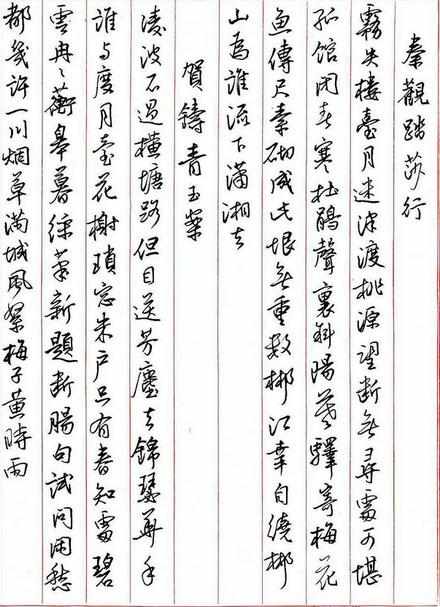 秦觀踏莎行
霧失樓臺月迷津渡桃源望斷無尋處可堪
孤館閉春寒杜鵑聲裏斜陽暮驛寄梅花
魚傳尺素砌成此恨無重數郴江幸自繞郴
山為誰流下瀟湘去
賀鑄青玉案
淩波不過橫塘路但目送芳塵去錦瑟華年
誰與度月臺花榭瑣窓朱户只有春知處碧
雲冉〻蘅皋暮綵筆新題斷腸句試問閑愁
都幾許一川烟草滿城風絮梅子黃時雨